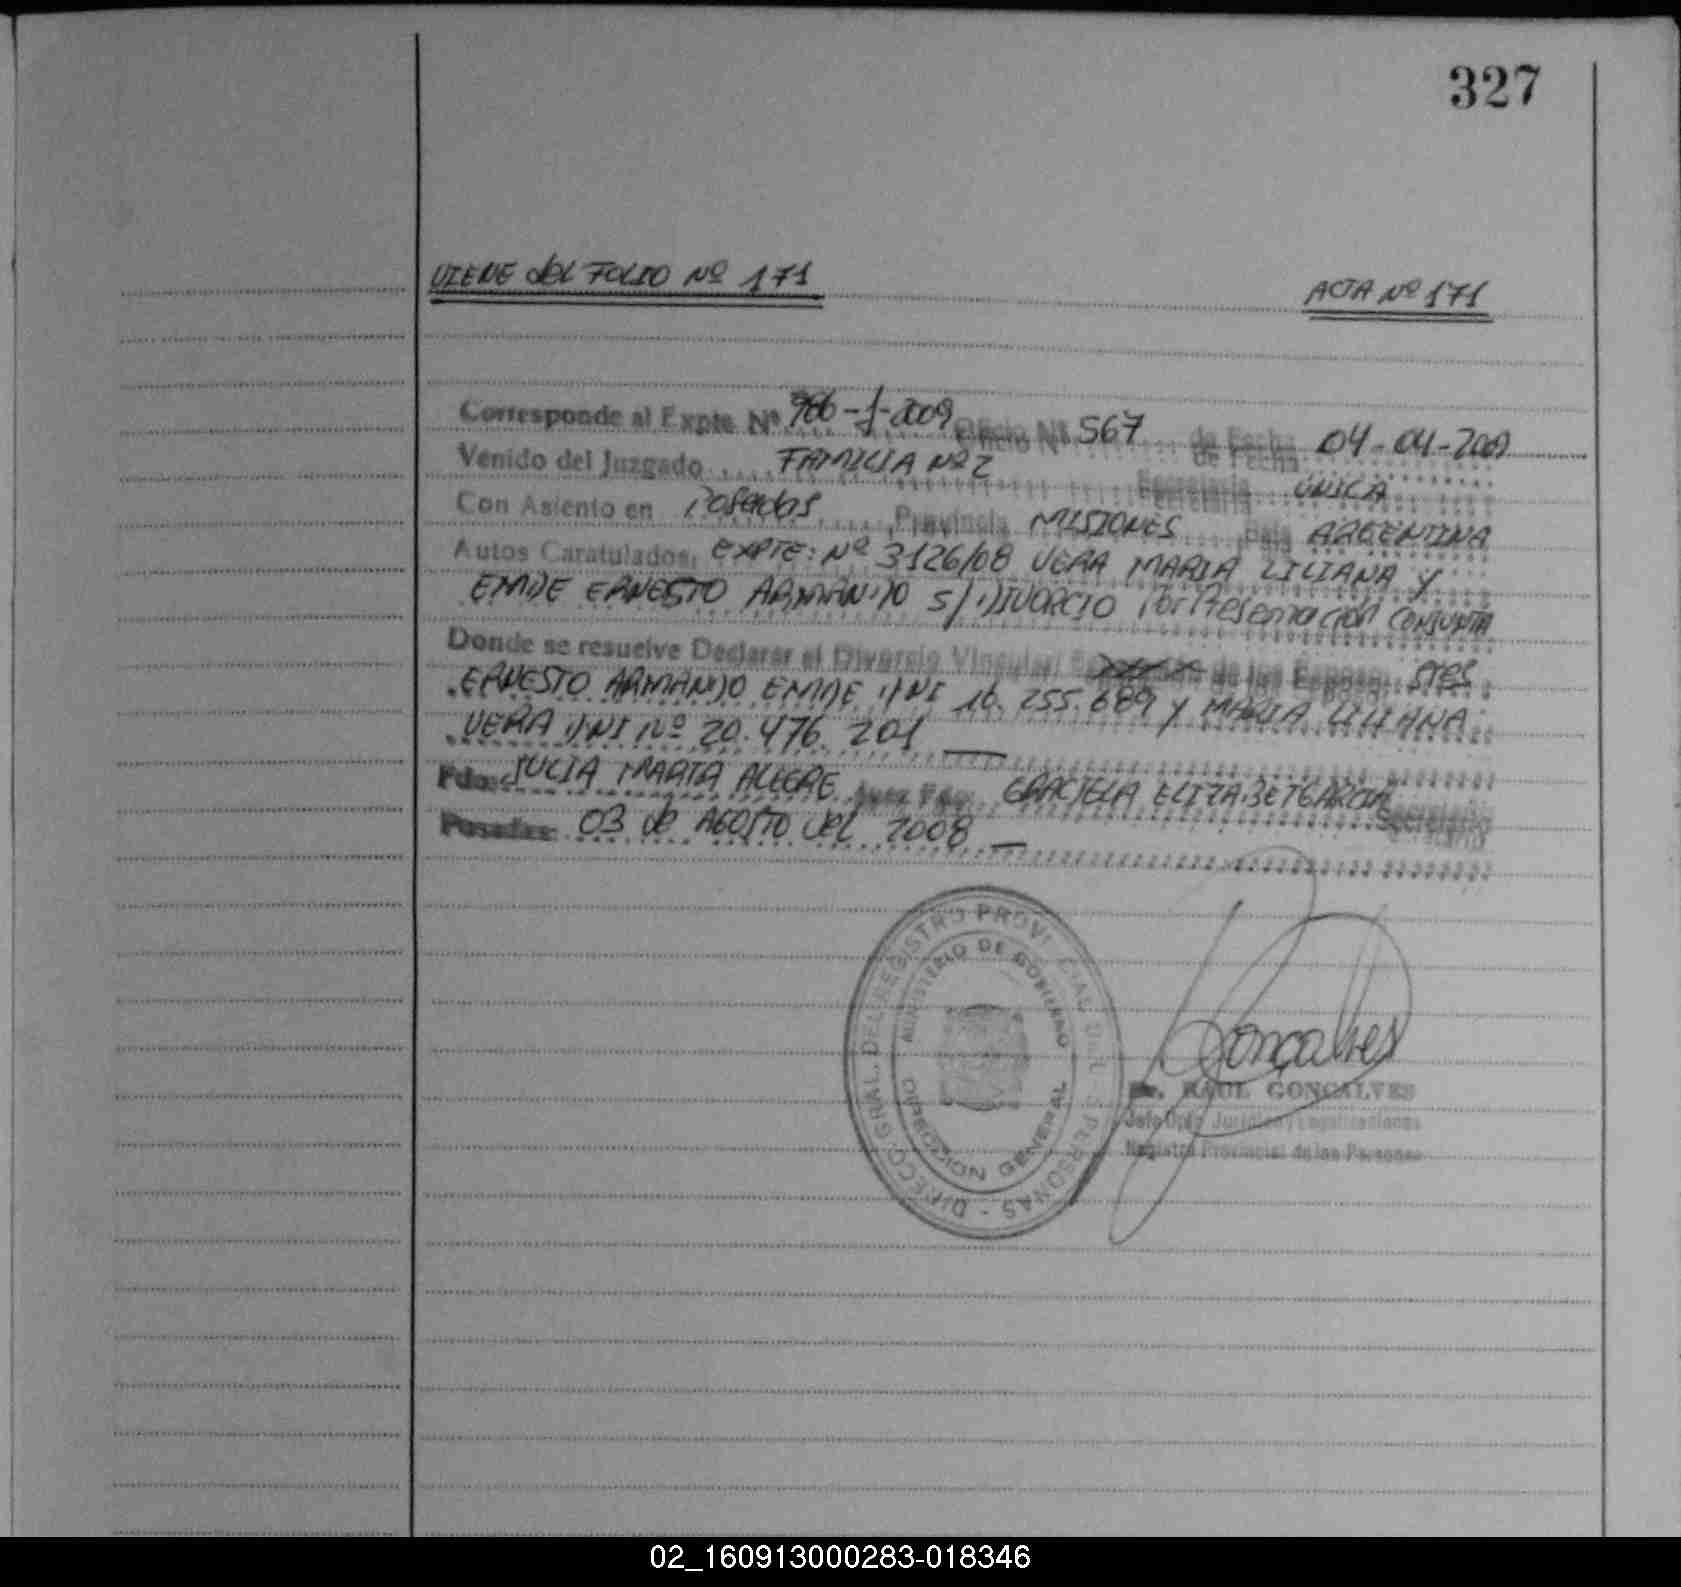 327
VIENE del FOLIO Nº 171
ACTA Nº 171
Corresponde al Expte Nº 966-J-2009 Oficio Nº 567 de Fecha 04-04-2009
Venido del Juzgado FAMILIA Nº 2 Secretaria UNICA
Con Asiento en Posadas Provincia MISIONES Pais ARGENTINA
Autos Caratulados, EXPTE: Nº 3126/08 VERA MARIA LILIANA y
ERNESTO ARMANDO S/ DIVORCIO Por Presentación CONJUNTA
Donde se resuelve Declarar el Divorcio Vincular de los Esposos
ERNESTO ARMANDO DNI 16.255.689 y MARIA LILIANA
VERA DNI Nº 20.476.201
Fdo: JULIA MARTA ALEGRE Juez Fdo: GRACIELA ELIZABET GARCIA Secretario
Posadas: 03 de AGOSTO del 2008
DIRECC. GRAL. DEL REGISTRO PROVINCIAL DE LAS PERSONAS
MINISTERIO DE GOBIERNO
DIRECCION GENERAL
Gonçalves
Dr. RAUL GONCALVES
Jefe Dpto Juridico y Legalizaciones
Registro Provincial de las Personas
02_160913000283-018346